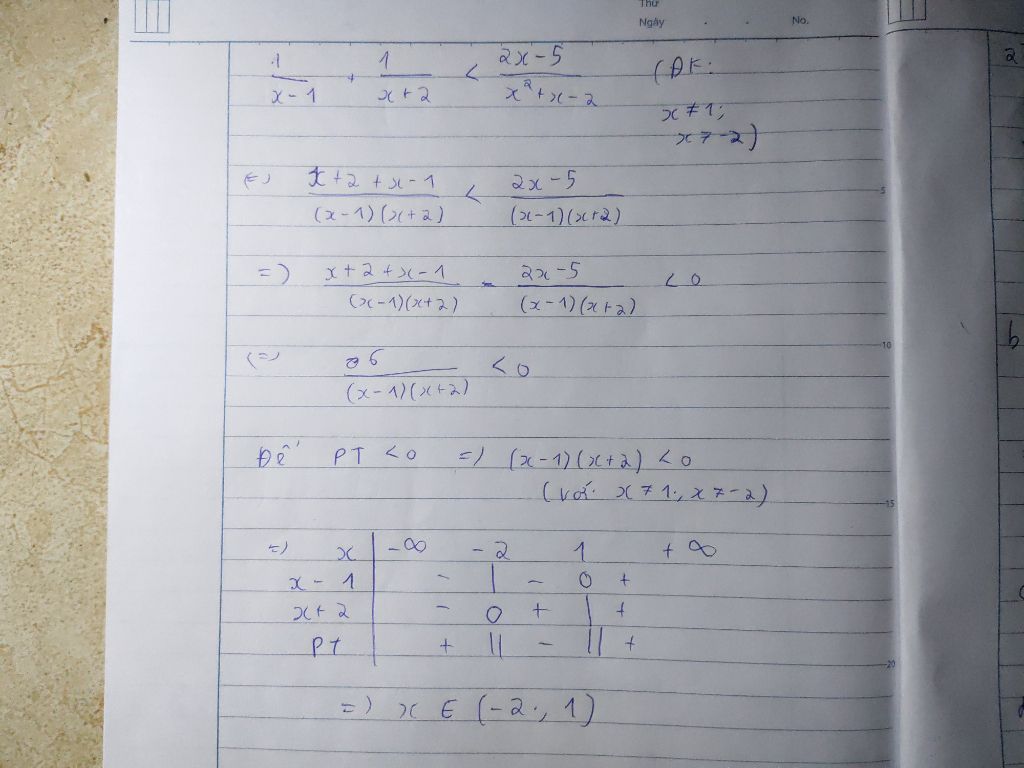 Thứ
Ngày . . No.
1/(x-1) + 1/(x+2) < (2x-5)/(x²+x-2) (ĐK:
x ≠ 1;
x ≠ -2)
(=) (x+2+x-1)/((x-1)(x+2)) < (2x-5)/((x-1)(x+2))
5
=) (x+2+x-1)/((x-1)(x+2)) - (2x-5)/((x-1)(x+2)) < 0
10
(=) 6/((x-1)(x+2)) < 0
Để PT < 0 =) (x-1)(x+2) < 0
(với x ≠ 1; x ≠ -2)
15
=) x | -∞ -2 1 +∞
x-1 | - | - 0 +
x+2 | - 0 + | +
PT | + || - || +
20
=) x ∈ (-2; 1)
2
b